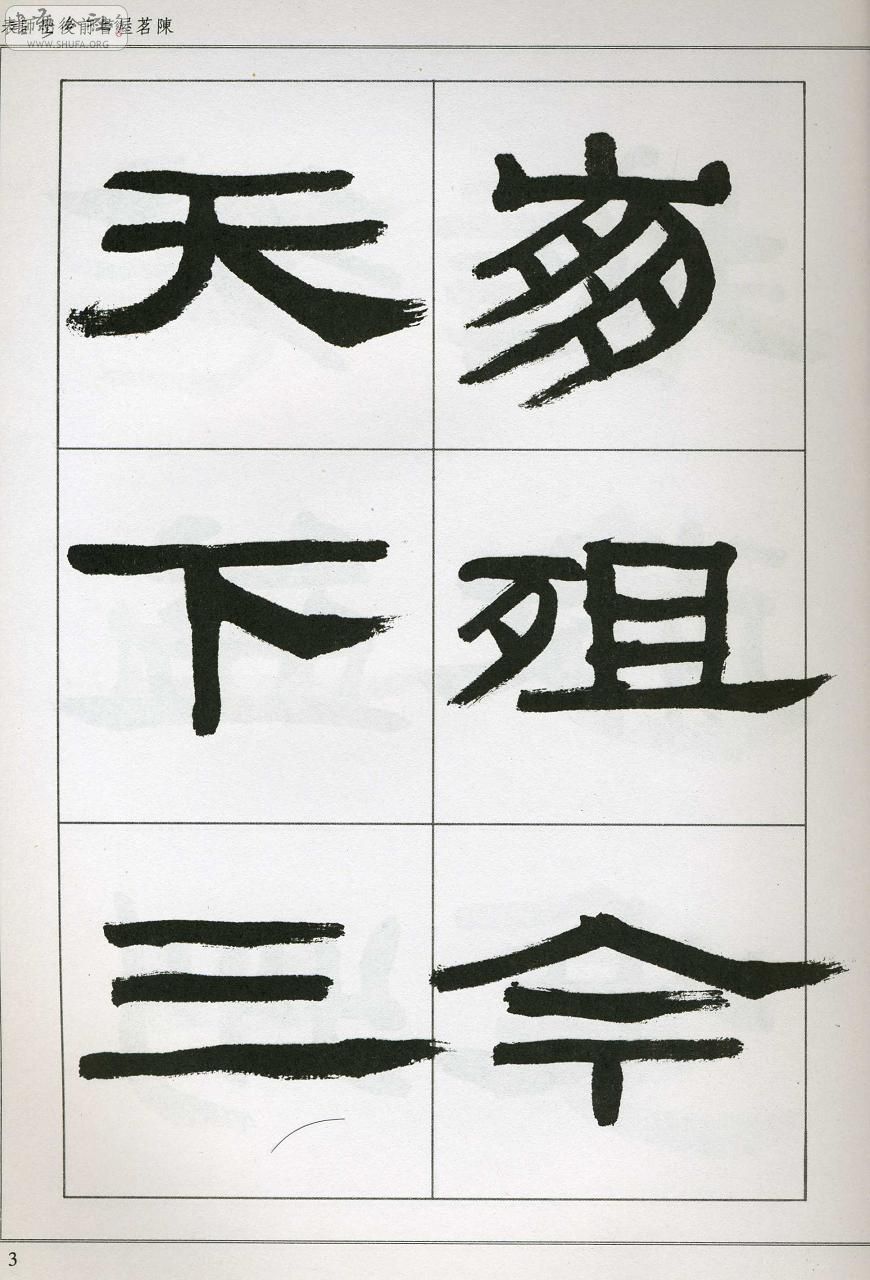 陳茗屋書前後出師表
WWW.SHUFA.ORG
崩殂今
天下三
3